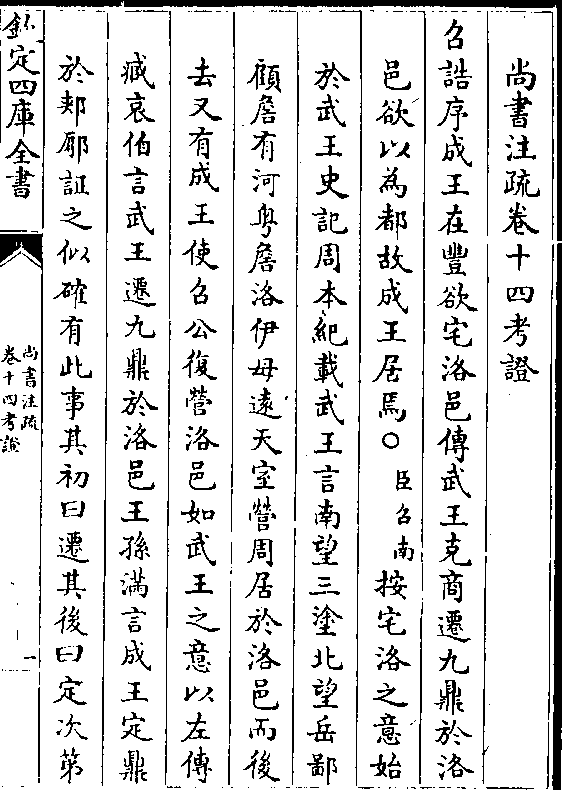 尚書注疏卷十四考證
召誥序成王在豐欲宅洛邑傳武王克商遷九鼎於洛
邑欲以為都故成王居焉○臣召南按宅洛之意始
於武王史記周本紀載武王言南望三塗北望岳鄙
顧詹有河粵詹洛伊毋遠天室營周居於洛邑而後
去又有成王使召公復營洛邑如武王之意以左傳
臧哀伯言武王遷九鼎於洛邑王孫滿言成王定鼎
於郟鄏証之似確有此事其初曰遷其後曰定次第
欽定四庫全書
尚書注疏
卷十四考證
一